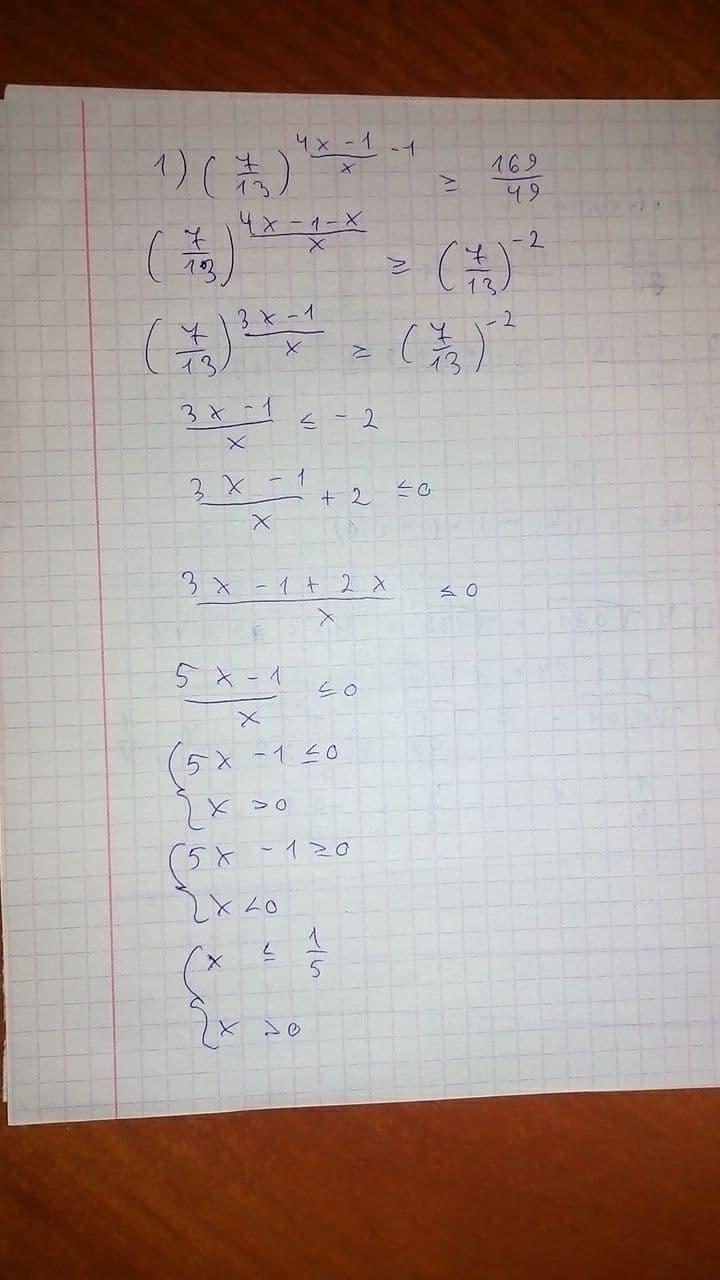 1) (7/13)^((4x-1)/x -1) ≥ 169/49
(7/13)^((4x-1-x)/x) ≥ (7/13)^-2
(7/13)^((3x-1)/x) ≥ (7/13)^-2
(3x-1)/x ≤ -2
(3x-1)/x + 2 ≤ 0
(3x-1+2x)/x ≤ 0
(5x-1)/x ≤ 0
{5x-1 ≤ 0
{x > 0
{5x-1 ≥ 0
{x < 0
{x ≤ 1/5
{x > 0